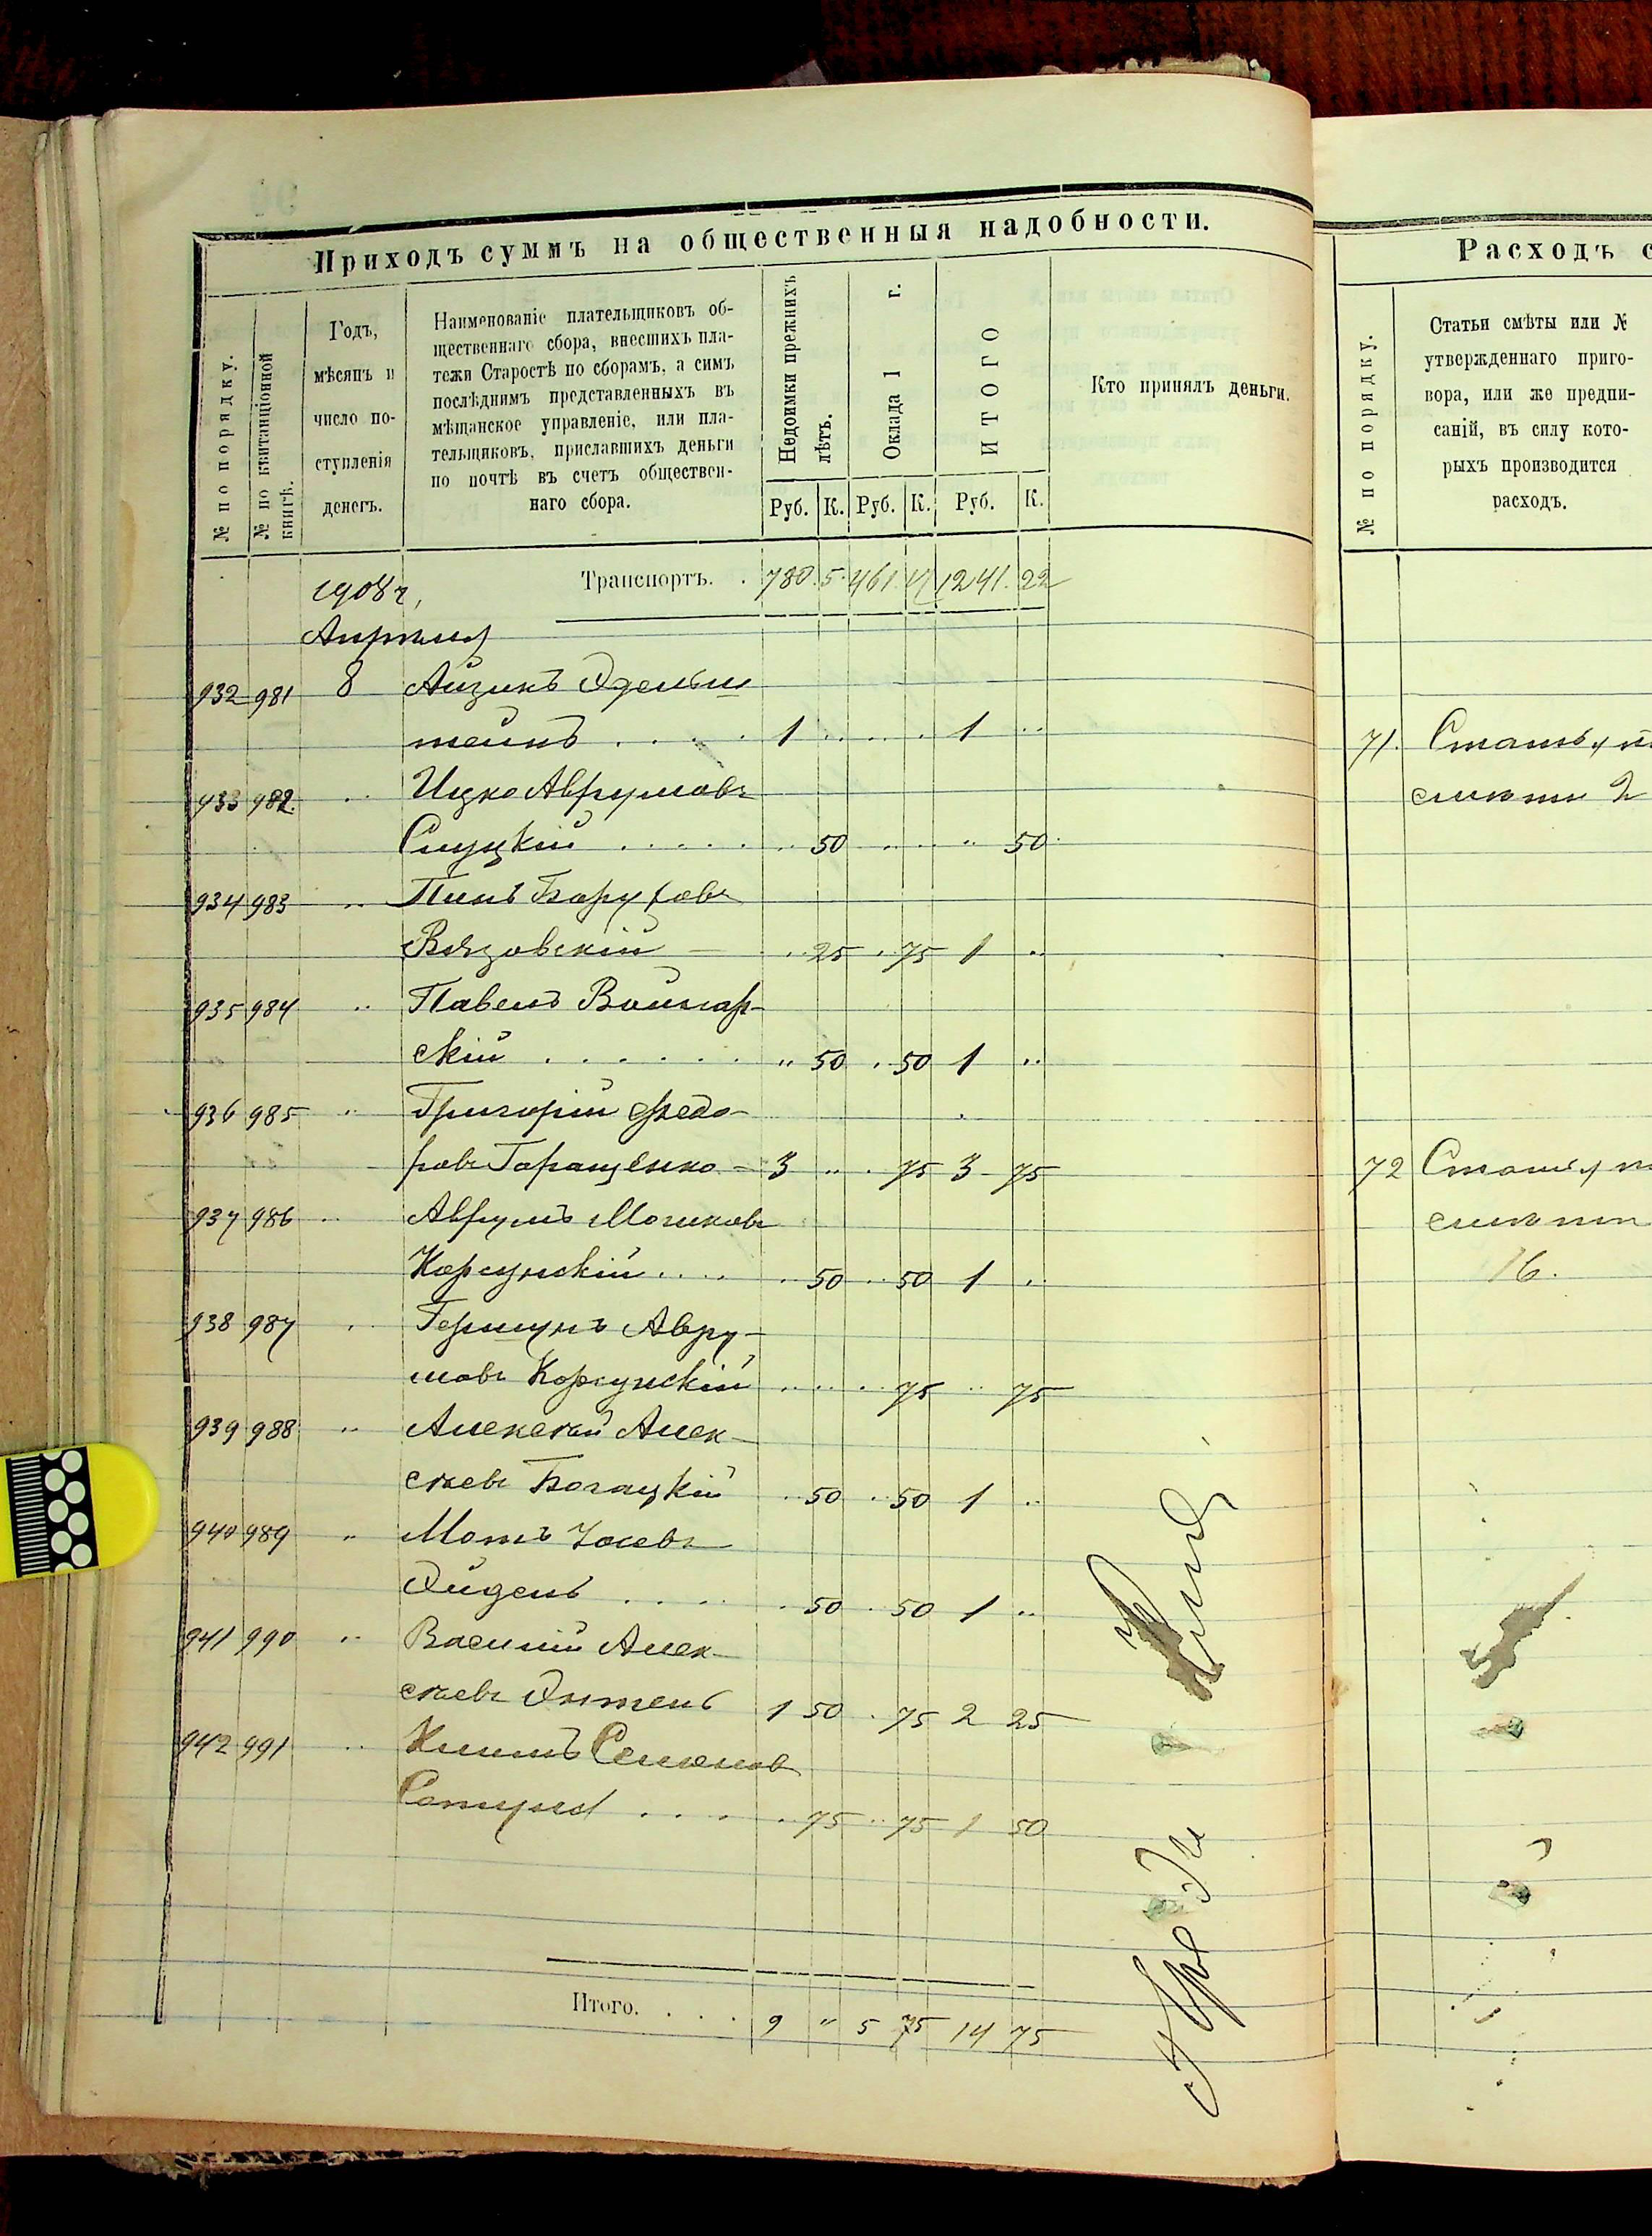 Приходъ суммъ на общественныя надобности.
№ по порядку.
№ по квитанціонной книгѣ.
Годъ,
мѣсяцъ и
число по-
ступленія
денегъ.
Наименованіе плательщиковъ об-
щественнаго сбора, внесшихъ пла-
тежи Старостѣ по сборамъ, а симъ
послѣднимъ представленныхъ въ
мѣщанское управленіе, или пла-
тельщиковъ, приславшихъ деньги
по почтѣ въ счетъ обществен-
наго сбора.
Недоимки прежнихъ лѣтъ.
Оклада 1 г.
ИТОГО
Кто принялъ деньги.
Руб. К. Руб. К. Руб. К.
1908 г, Транспортъ. . 780. 5. 461. 17 1241. 22
Апрѣля
932 981 8 Айзикъ Эдельш
тейнъ . . . . 1 .. .. .. 1 ..
933 982. .. Ицко Аврумовъ
Слуцкій . . . . . .. 50 .. .. .. 50
934 983 .. Пинъ Боруховъ
Вязовскій — .. 25 . 75 1 ..
935 984 .. Павелъ
скій . . . . . . " 50 . 50 1 ..
936 985 .. Григорій Ѳедо-
ровъ Гаращенко — 3 .. . 75 3 75
937 986 .. Аврумъ Мошковъ
Корсунскій . . . . .. 50 .. 50 1 ..
938 987 . Гершунъ Авру-
мовъ Корсунскій .. .. . 75 .. 75
939 988 .. Алексѣй Алек-
сѣевъ Богацкій .. 50 . 50 1 ..
940 989 .. Мотъ Іосевъ
Эйдель . . . . . 50 . 50 1 ..
941 990 .. Василій Алек-
сѣевъ 1 50 . 75 2 25
942 991 .. Климъ Семеновъ
. . . . . 75 .. 75 1 50
Итого. . . . 9 " 5 75 14 75
Расходъ с
№ по порядку.
Статьи смѣты или №
утвержденнаго приго-
вора, или же предпи-
саній, въ силу кото-
рыхъ производится
расходъ.
71. Статья
смѣты 2
72 Статья
смѣты
16.